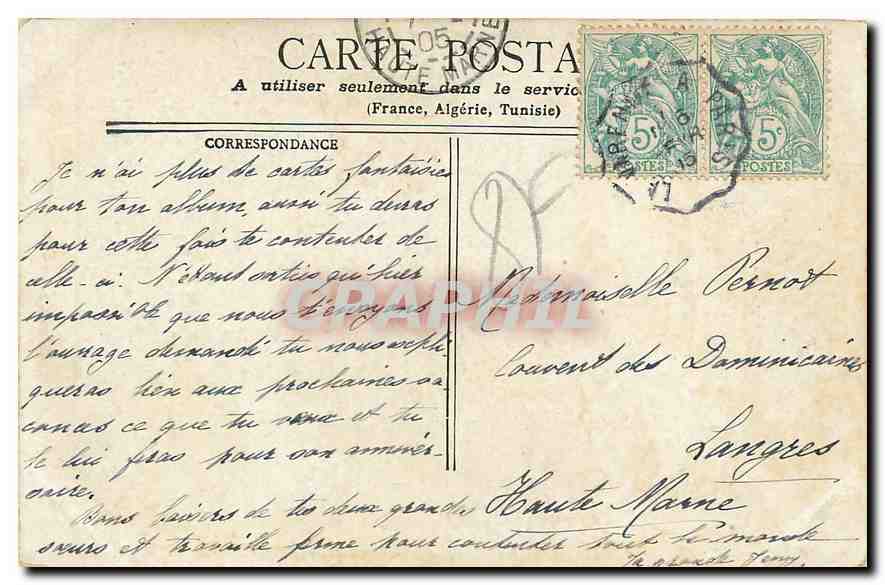 CARTE POSTA
A utiliser seulement dans le servic
(France, Algérie, Tunisie)
05
HAUTE MARNE
A PARIS
LA
5c 5c
POSTES POSTES
CORRESPONDANCE
Je n'ai plus de cartes fantaisies
pour ton album, aussi tu devras
pour cette fois te contenter de
celle-ci. N'étant sorties qu'hier
impossible que nous t'envoyons
l'ouvrage demandé tu nous expli
queras bien aux prochaines va
cances ce que tu veux et tu
le lui feras pour son anniver-
saire.
Bons baisers de tes deux grandes
sœurs et travaille ferme pour contenter tout le monde
Ta grande Jeny.
85
Mademoiselle Pernot
Couvent des Dominicaines
Langres
Haute Marne
CPAPHIL